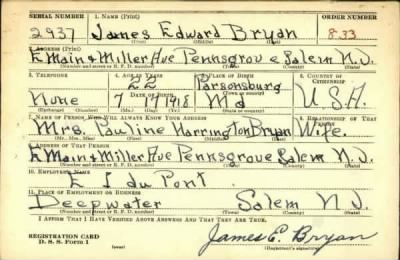 SERIAL NUMBER 1. NAME (Print) ORDER NUMBER
2937 James Edward Bryan 833
(First) (Middle) (Last)
2. ADDRESS (Print)
E Main & Miller Ave Pennsgrove Salem N.J.
(Number and street or R. F. D. number) (Town) (County) (State)
3. TELEPHONE 4. AGE IN YEARS 5. PLACE OF BIRTH 6. COUNTRY OF CITIZENSHIP
22 Parsonsburg
DATE OF BIRTH (Town or county)
None 7 17 1918 Md U.S.A.
(Exchange) (Number) (Mo.) (Day) (Yr.) (State or country)
7. NAME OF PERSON WHO WILL ALWAYS KNOW YOUR ADDRESS 8. RELATIONSHIP OF THAT PERSON
Mrs. Pauline Harrington Bryan Wife.
(Mr., Mrs., Miss) (First) (Middle) (Last)
9. ADDRESS OF THAT PERSON
E Main & Miller Ave Pennsgrove Salem N.J.
(Number and street or R. F. D. number) (Town) (County) (State)
10. EMPLOYER'S NAME
E I du Pont
11. PLACE OF EMPLOYMENT OR BUSINESS
Deepwater Salem N J.
(Number and street or R. F. D. number) (Town) (County) (State)
I AFFIRM THAT I HAVE VERIFIED ABOVE ANSWERS AND THAT THEY ARE TRUE.
REGISTRATION CARD
D. S. S. FORM 1 James E. Bryan
(over) (Registrant's signature)